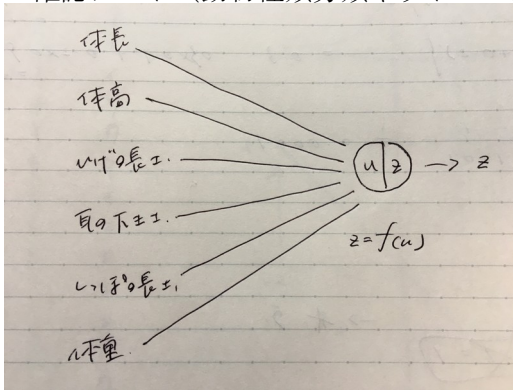 体長
体高
ひげの長さ
耳の大きさ
しっぽの長さ
体重
u z → z
z = f(u)